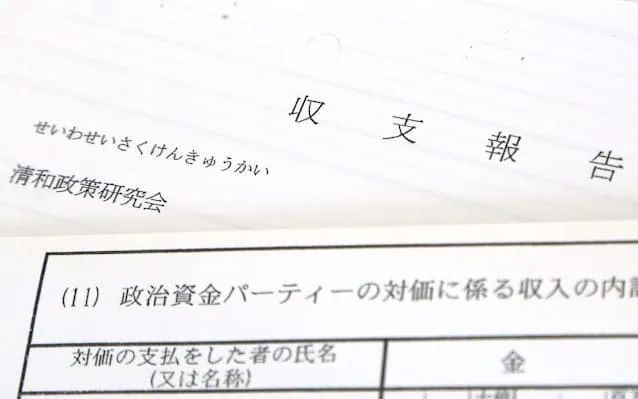 収支報告
せいわせいさくけんきゅうかい
清和政策研究会
(11) 政治資金パーティーの対価に係る収入の内
対価の支払をした者の氏名
(又は名称)
金